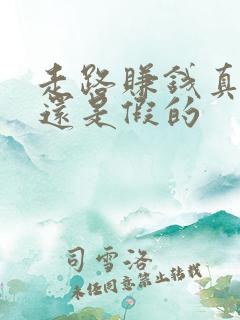 走路賺錢真
還是假的
司雪洛
未经同意禁止转载